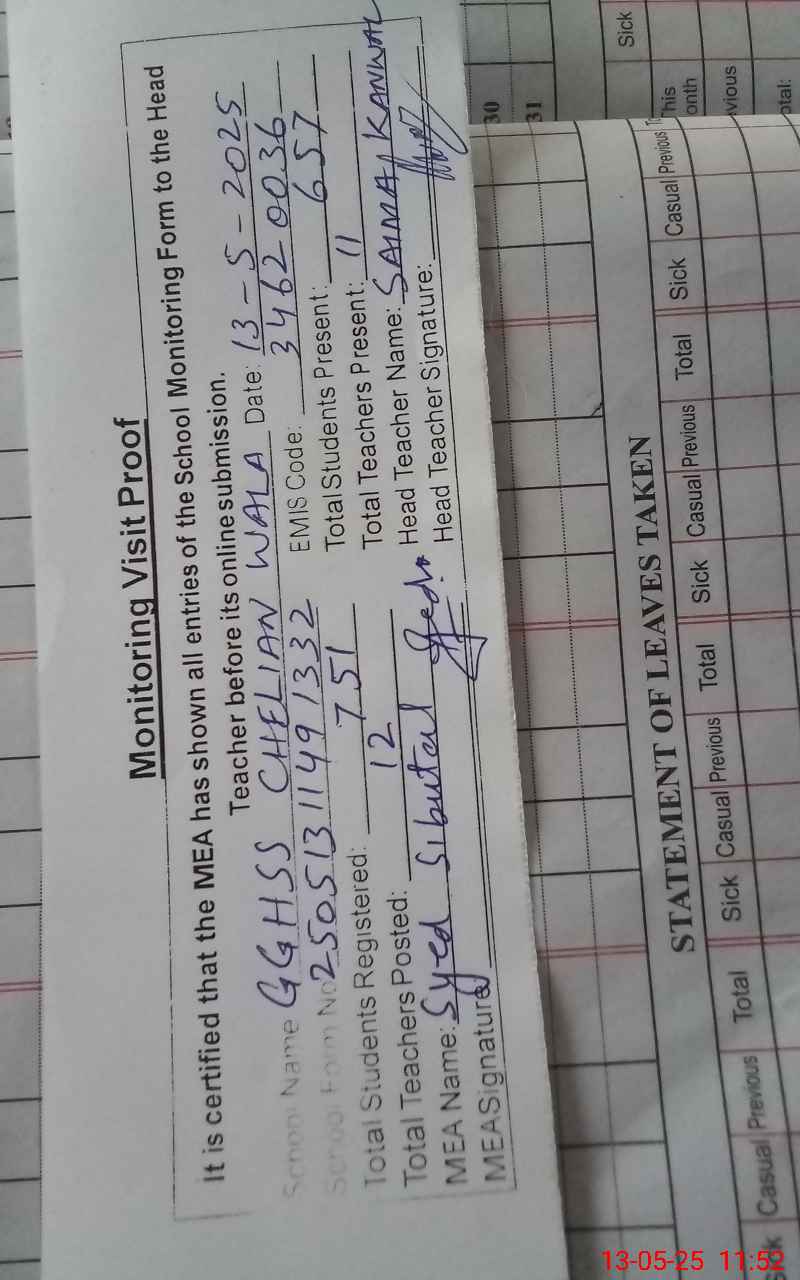 Monitoring Visit Proof
It is certified that the MEA has shown all entries of the School Monitoring Form to the Head
Teacher before its online submission.
School Name GGHSS CHELIAN WALA Date: 13-5-2025
School Form No 2505131149 1332 EMIS Code: 34620036
Total Students Registered: 751 Total Students Present: 657
Total Teachers Posted: 12 Total Teachers Present: 11
MEA Name: Syed Sibutail Head Teacher Name: SAIMA KANWAL
MEA Signature Head Teacher Signature:
30
31
Sick
This
onth
vious
otal:
STATEMENT OF LEAVES TAKEN
Sick Casual Previous Total Sick Casual Previous Total Sick Casual Previous Total Sick Casual Previous
13-05-25 11:52